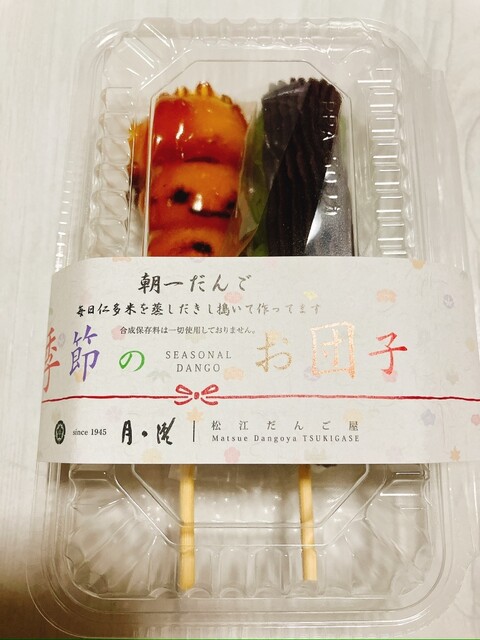 朝一だんご
毎日仁多米を蒸しだきし搗いて作ってます
合成保存料は一切使用しておりません。
季節の SEASONAL DANGO お団子
since 1945 月・瀬 松江だんご屋
Matsue Dangoya TSUKIGASE